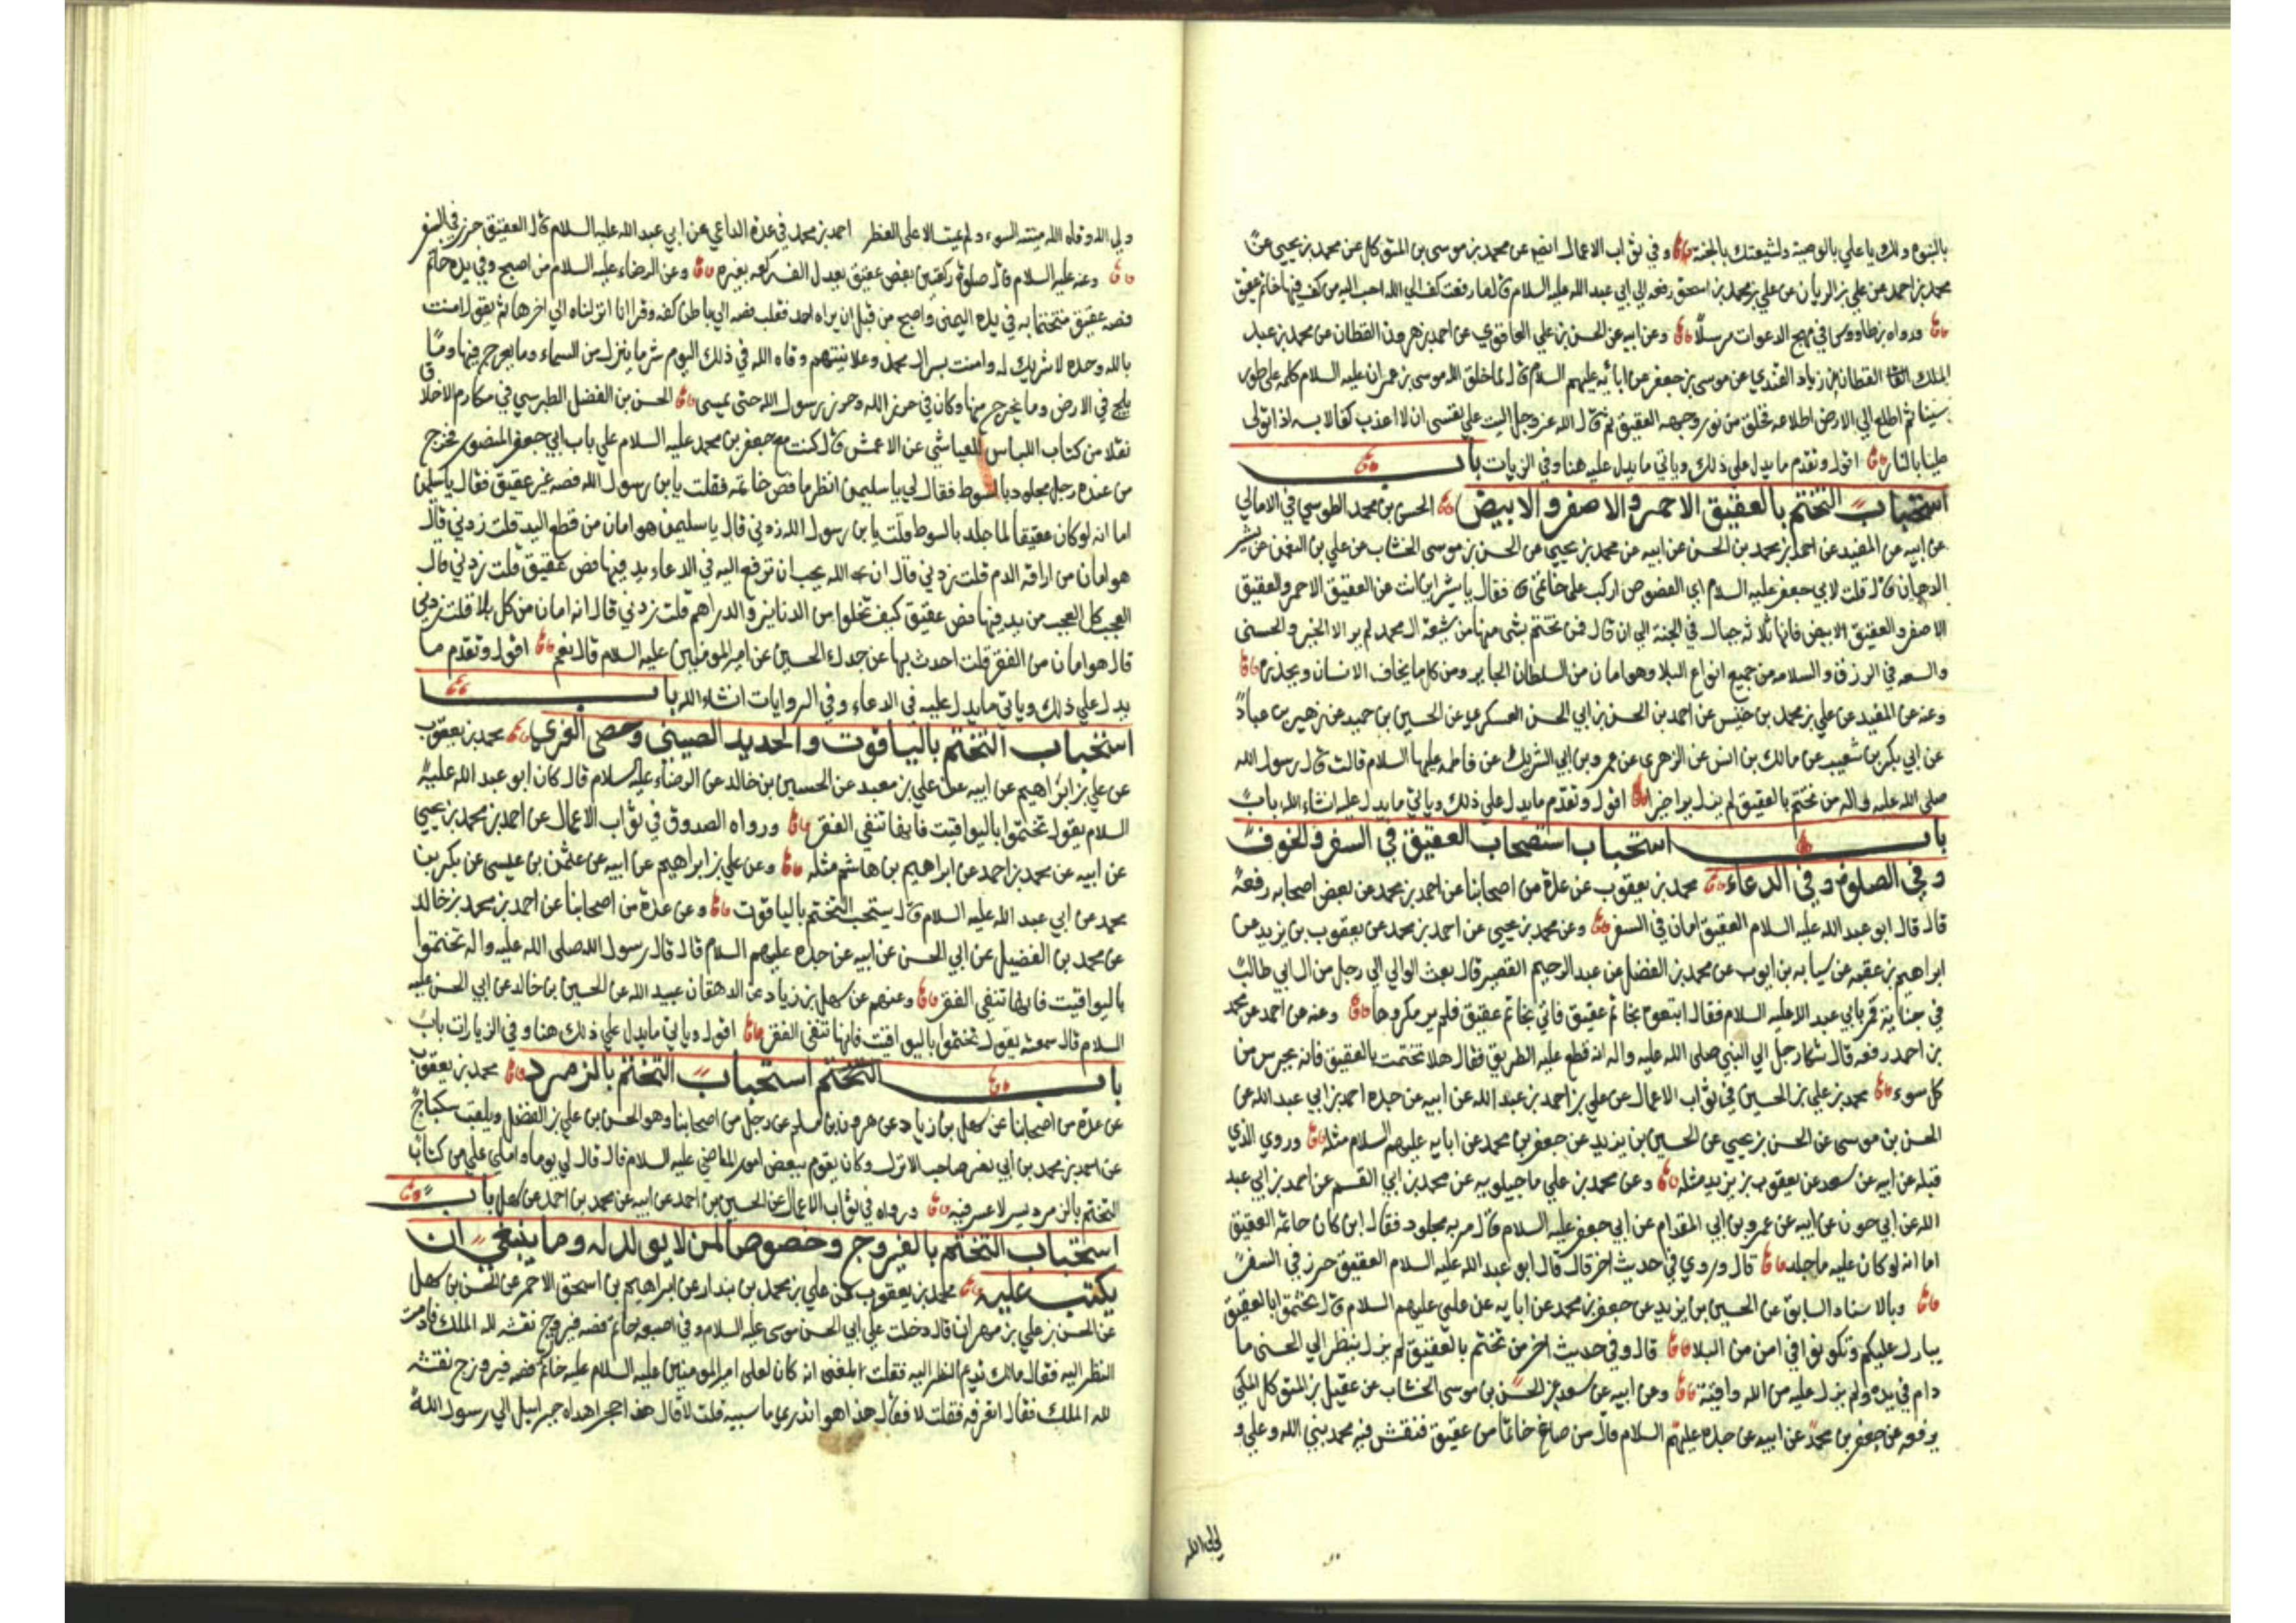 بالنبوه ولك يا علي بالوصية ولشيعتك بالجنه وفي ثواب الاعمال ايضا عن محمد بن موسى بن المتوكل عن محمد بن يحيى عن
محمد بن احمد عن علي بن الريان عن علي بن محمد بن اسحق رفعه الى ابي عبد الله عليه السلام قال ما رفعت كف الي الله احب اليه من كف فيها خاتم عقيق
ورواه بن طاووس في مهج الدعوات مرسلا وعن ابيه عن الحسن بن علي العاقولي عن احمد بن هرون القطان عن محمد بن عبد
الملك القطان عن زياد القندي عن موسى بن جعفر عن ابائه عليهم السلام قال لما خلق الله موسى بن عمران عليه السلام كلمه على طور
سينا ثم اطلع الي الارض اطلاعه فخلق من نور وجهه العقيق ثم قال الله عز وجل اليت علي نفسي ان لا اعذب كفا لابسه اذا تولى
عليا بالنار اقول وتقدم ما يدل على ذلك وياتي ما يدل عليه هنا وفي الزيارات باب
استحباب التختم بالعقيق الاحمر والاصفر والابيض الحسن بن محمد الطوسي في الامالي
عن ابيه عن المفيد عن احمد بن محمد بن الحسن عن ابيه عن محمد بن يحيى عن الحسن بن موسى الخشاب عن علي بن النعمن عن بشير
الدهان قال قلت لابي جعفر عليه السلام اي الفصوص اركب على خاتمي قال فقال يا بشير اين انت عن العقيق الاحمر والعقيق
الاصفر والعقيق الابيض فانها ثلاثه جبال في الجنة الى ان قال فمن تختم بشى منها من شيعة ال محمد لم ير الا الخير والحسنى
والسعه في الرزق والسلامه من جميع انواع البلا وهو امان من السلطان الجاير ومن كل ما يخاف الانسان ويحذره
وعنه عن المفيد عن علي بن محمد بن حنيس عن احمد بن الحسن بن ابي الحسن العسكري عن الحسين بن حميد عن زهير بن عباد
عن ابي بكر بن شعيب عن مالك بن انس عن الزهري عن عمرو بن ابي الشريك عن فاطمه عليها السلام قالت قال رسول الله
صلى الله عليه واله من تختم بالعقيق لم يزل يرا خيرا اقول وتقدم ما يدل علي ذلك وياتي ما يدل عليه انشاء الله باب
باب استحباب استصحاب العقيق في السفر والخوف
وفي الصلوة وفي الدعاء محمد بن يعقوب عن عدة من اصحابنا عن احمد بن محمد عن بعض اصحابه رفعه
قال قال ابو عبد الله عليه السلام العقيق امان في السفر وعن محمد بن يحيى عن احمد بن محمد عن يعقوب بن يزيد عن
ابراهيم بن عقبه عن سيابه بن ايوب عن محمد بن الفضل عن عبد الرحيم القصير قال بعث الوالي الي رجل من ال ابي طالب
في جناية فمر بابي عبد الله عليه السلام فقال اتبعوه بخاتم عقيق فاتي بخاتم عقيق فلم ير مكروها وعنه عن احمد عن محمد
بن احمد رفعه قال شكا رجل الي النبي صلى الله عليه واله انه قطع عليه الطريق فقال هلا تختمت بالعقيق فانه يحرس من
كل سوء محمد بن علي بن الحسين في ثواب الاعمال عن علي بن احمد بن عبد الله عن ابيه عن جده احمد بن ابي عبد الله عن
الحسن بن موسى عن الحسن بن يحيي عن الحسين بن يزيد عن جعفر بن محمد عن ابايه عليهم السلام مثله وروي الذي
قبله عن ابيه عن سعد عن يعقوب بن يزيد مثله وعن محمد بن علي ماجيلويه عن محمد بن ابي القسم عن احمد بن ابي عبد
الله عن ابي حون عن ابيه عن عمرو بن ابي المقدام عن ابي جعفر عليه السلام قال مر به مجلود فقال اين كان خاتمه العقيق
اما انه لو كان عليه ما جلد قال وروي في حديث اخر قال قال ابو عبد الله عليه السلام العقيق حرز في السفر
وبالاسناد السابق عن الحسين بن يزيد عن جعفر بن محمد عن ابايه عن علي عليهم السلام قال تختموا بالعقيق
يبارك عليكم وتكونوا في امن من البلا قال وفي حديث اخر من تختم بالعقيق لم يزل ينظر الي الحسنى ما
دام في يده ولم يزل عليه من الله واقية وعن ابيه عن سعد عن الحسن بن موسى الخشاب عن عقيل بن المتوكل المكي
يرفعه عن جعفر بن محمد عن ابيه عن جده عليهم السلام قال من صاغ خاتما من عقيق فنقش فيه محمد نبي الله وعلي و
ولي الله وقاه الله ميتة السوء ولم يمت الا على الفطر احمد بن محمد في عدة الداعي عن ابي عبد الله عليه السلام قال العقيق حرز في السفر
وعنه عليه السلام قال صلوة ركعتين بفص عقيق يعدل الف ركعه بغيره وعن الرضاء عليه السلام من اصبح وفي يده خاتم
فصه عقيق متختما به في يده اليمنى واصبح من قبل ان يراه احد فقلب فصه الي باطن كفه وقرا انا انزلناه الي اخرها ثم يقول امنت
بالله وحده لا شريك له وامنت بسر ال محمد وعلانيتهم وقاه الله في ذلك اليوم شر ما ينزل من السماء وما يعرج فيها وما
يلج في الارض وما يخرج منها وكان في حرز الله وحرز رسول الله حتى يمسى الحسن بن الفضل الطبرسي في مكارم الاخلاق
نقلا من كتاب اللباس للعياشي عن الاعمش قال كنت مع جعفر بن محمد عليه السلام على باب ابي جعفر المنصور فخرج
من عنده رجل مجلود بالسوط فقال لي يا سليمن انظر ما فص خاتمه فقلت يا بن رسول الله فصه غير عقيق فقال يا سليمن
اما انه لو كان عقيقا لما جلد بالسوط قلت يا بن رسول الله زدني قال يا سليمن هو امان من قطع اليد قلت زدني قال
هو امان من اراقه الدم قلت زدني قال ان الله يحب ان ترفع اليه في الدعاء يد فيها فص عقيق قلت زدني قال
العجب كل العجب من يد فيها فص عقيق كيف تخلوا من الدنانير والدراهم قلت زدني قال انه امان من كل بلا قلت زدني
قال هو امان من الفقر قلت احدث بها عن جدك الحسين عن امير المومنين عليه السلام قال نعم اقول وتقدم ما
يدل علي ذلك وياتي ما يدل عليه في الدعاء وفي الروايات انشاء الله باب
استحباب التختم بالياقوت والحديد الصيني وحصى الغري محمد بن يعقوب
عن علي بن ابراهيم عن ابيه عن علي بن معبد عن الحسين بن خالد عن الرضاء عليه السلام قال كان ابو عبد الله عليه
السلام يقول تختموا باليواقيت فانها تنفي الفقر ورواه الصدوق في ثواب الاعمال عن احمد بن محمد بن يحيى
عن ابيه عن محمد بن احمد عن ابراهيم بن هاشم مثله وعن علي بن ابراهيم عن ابيه عن عثمن بن عيسى عن بكر بن
محمد عن ابي عبد الله عليه السلام قال يستحب التختم بالياقوت وعن عدة من اصحابنا عن احمد بن محمد بن خالد
عن محمد بن الفضيل عن ابي الحسن عن ابيه عن جده عليهم السلام قال قال رسول الله صلى الله عليه واله تختموا
باليواقيت فانها تنفي الفقر وعنهم عن سهل بن زياد عن الدهقان عبيد الله عن الحسين بن خالد عن ابي الحسن عليه
السلام قال سمعته يقول تختموا باليواقيت فانها تنفي الفقر اقول وياتي ما يدل على ذلك هنا وفي الزيارات باب
باب التختم استحباب التختم بالزمرد محمد بن يعقوب
عن عدة من اصحابنا عن سهل بن زياد عن هرون بن مسلم عن رجل من اصحابنا وهو الحسن بن علي بن الفضل ويلقب سكباج
عن احمد بن محمد بن ابي نصر صاحب الانزال وكان يقوم ببعض امور الماضي عليه السلام قال قال لي يوما واملى علي من كتاب
التختم بالزمرد يسر لا عسر فيه ورواه في ثواب الاعمال عن الحسين بن احمد عن ابيه عن محمد بن احمد عن سهل باب
استحباب التختم بالفيروج وخصوصا لمن لا يولد له وما ينبغي ان
يكتب عليه محمد بن يعقوب عن علي بن محمد بن بندار عن ابراهيم بن اسحق الاحمر عن الحسن بن سهل
عن الحسن بن علي بن مهران قال دخلت علي ابي الحسن موسى عليه السلام وفي اصبعه خاتم فصه فيروج نقشه لله الملك فادمت
النظر اليه فقال مالك تديم النظر اليه فقلت بلغنى انه كان لعلى امير المومنين عليه السلام عليه خاتم فصه فيروزج نقشه
لله الملك فقال اتعرفه فقلت لا فقال هذا هو اتدري ما سببه قلت لا قال هذا حجر اهداه جبراييل الي رسول الله